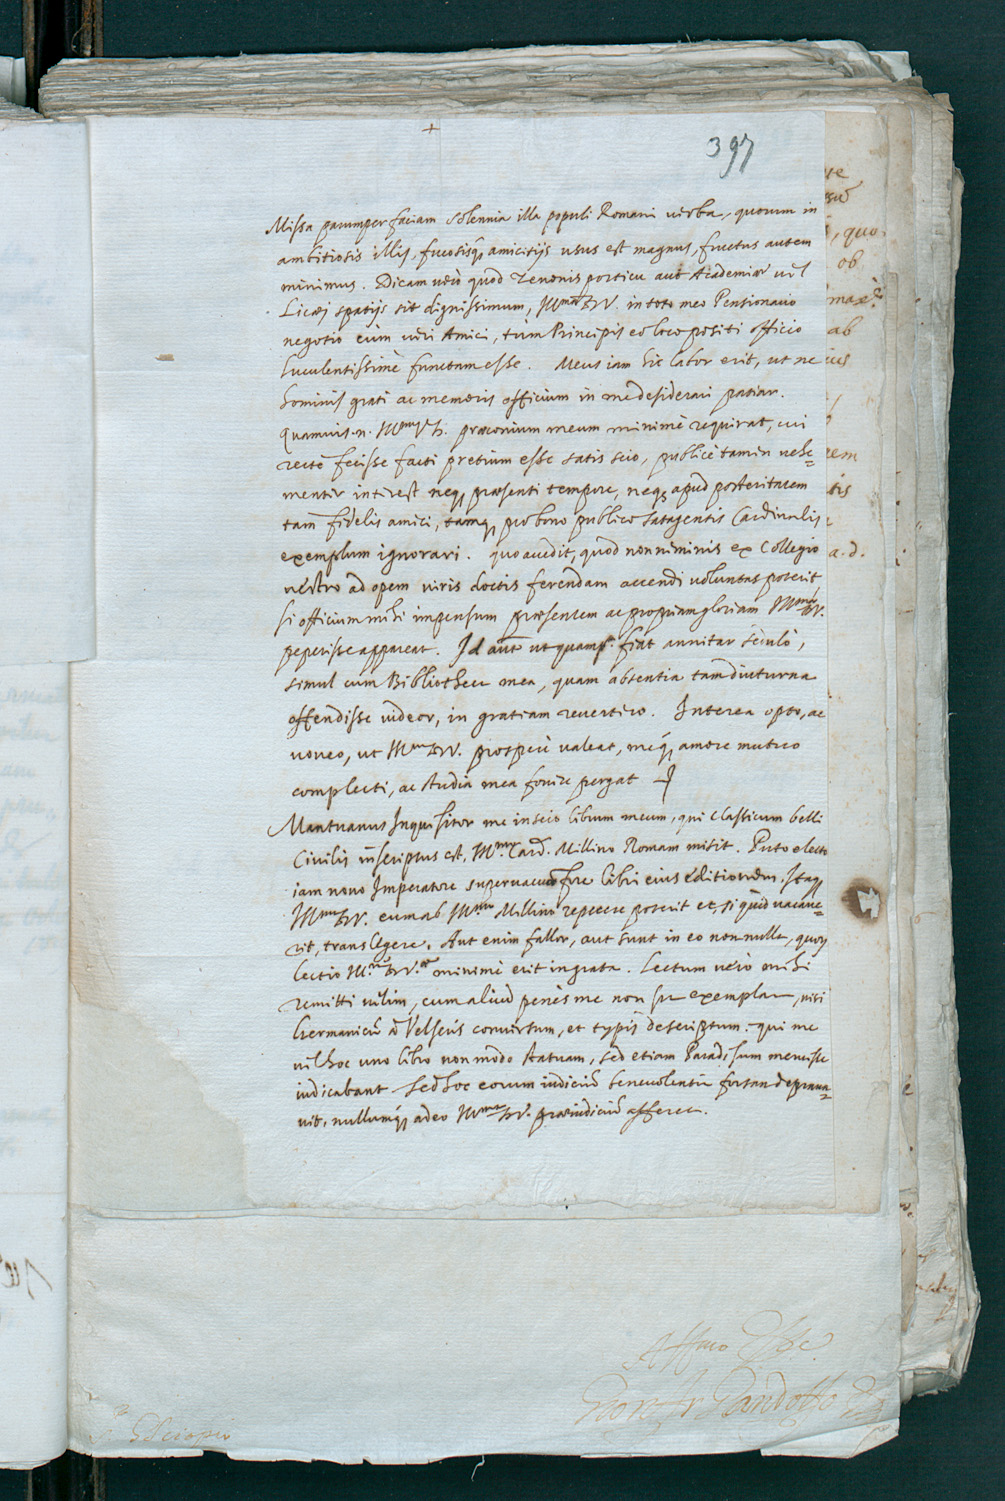 397
Missa parumper faciam solennia illa populi Romani verba, quorum in
ambitiosis illis, fucosisq; amicitijs usus est magnus, fructus autem
minimus. Dicam verò quod Zenonis porticu aut Academiae vel
Licaei spatijs sit dignissimum, Ill.mam D.V. in toto meo Pensionario
negotio cùm veri Amici, tùm Principis eo loco positi officio
luculentissimè functam esse. Meus iam hic labor erit, ut ne
hominis grati ac memoris officium in me desiderari patiar.
Quamvis.n. Ill.ma V. D. praeconium meum minimè requirat, cui
rectè fecisse facti pretium esse satis scio, publicè tamen vehe=
menter interest neq; praesenti tempore, neq; apud posteritatem
tam fidelis amici, tamq; pro bono publico satagentis Cardinalis
exemplum ignorari. quo accedit, quod nonniminis ex Collegio
vestro ad opem viris doctis ferendam accendi voluntas poterit
si officium mihi impensum praesentem ac propriam gloriam Ill.mae D.V.
peperisse appareat. Id aut ut quamp. fiat annitar sedulò,
simul cum Bibliotheca mea, quam absentia tam diuturna
offendisse videor, in gratiam revertero. Interea opto, ac
voveo, ut Ill.ma D.V. prosperè valeat, meq; amore mutuo
complecti, ac studia mea fovere pergat
Mantuanus Inquisitor me inscio librum meum, qui Classicum belli
Civilis inscriptus est, Ill.mo Card. Millino Romam misit. Puto electo
iam novo Imperatore supervacuam fore libri eius editionem. Itaq;
Ill.ma D.V. eum ab Ill.mo Millino repetere poterit et, si quid vacave=
rit, translegere. Aut enim fallor, aut sunt in eo nonnulla, quorum
lectio Ill.mae D.V.ae minimè erit ingrata. Lectum verò mihi
remitti velim, cum aliud penès me non sit exemplar, nisi
Germanicū à Velseris conversum, et typis descriptum. qui me
vel hoc uno libro non modo statuam, sed etiam Paradisum meruisse
iudicabant sed hoc eorum iudiciū benevolentia forsan deprava=
vit, nullumq; adeo Ill.mae D.V. praeiudiciū afferet.
Aff.mo
S. Scioppio